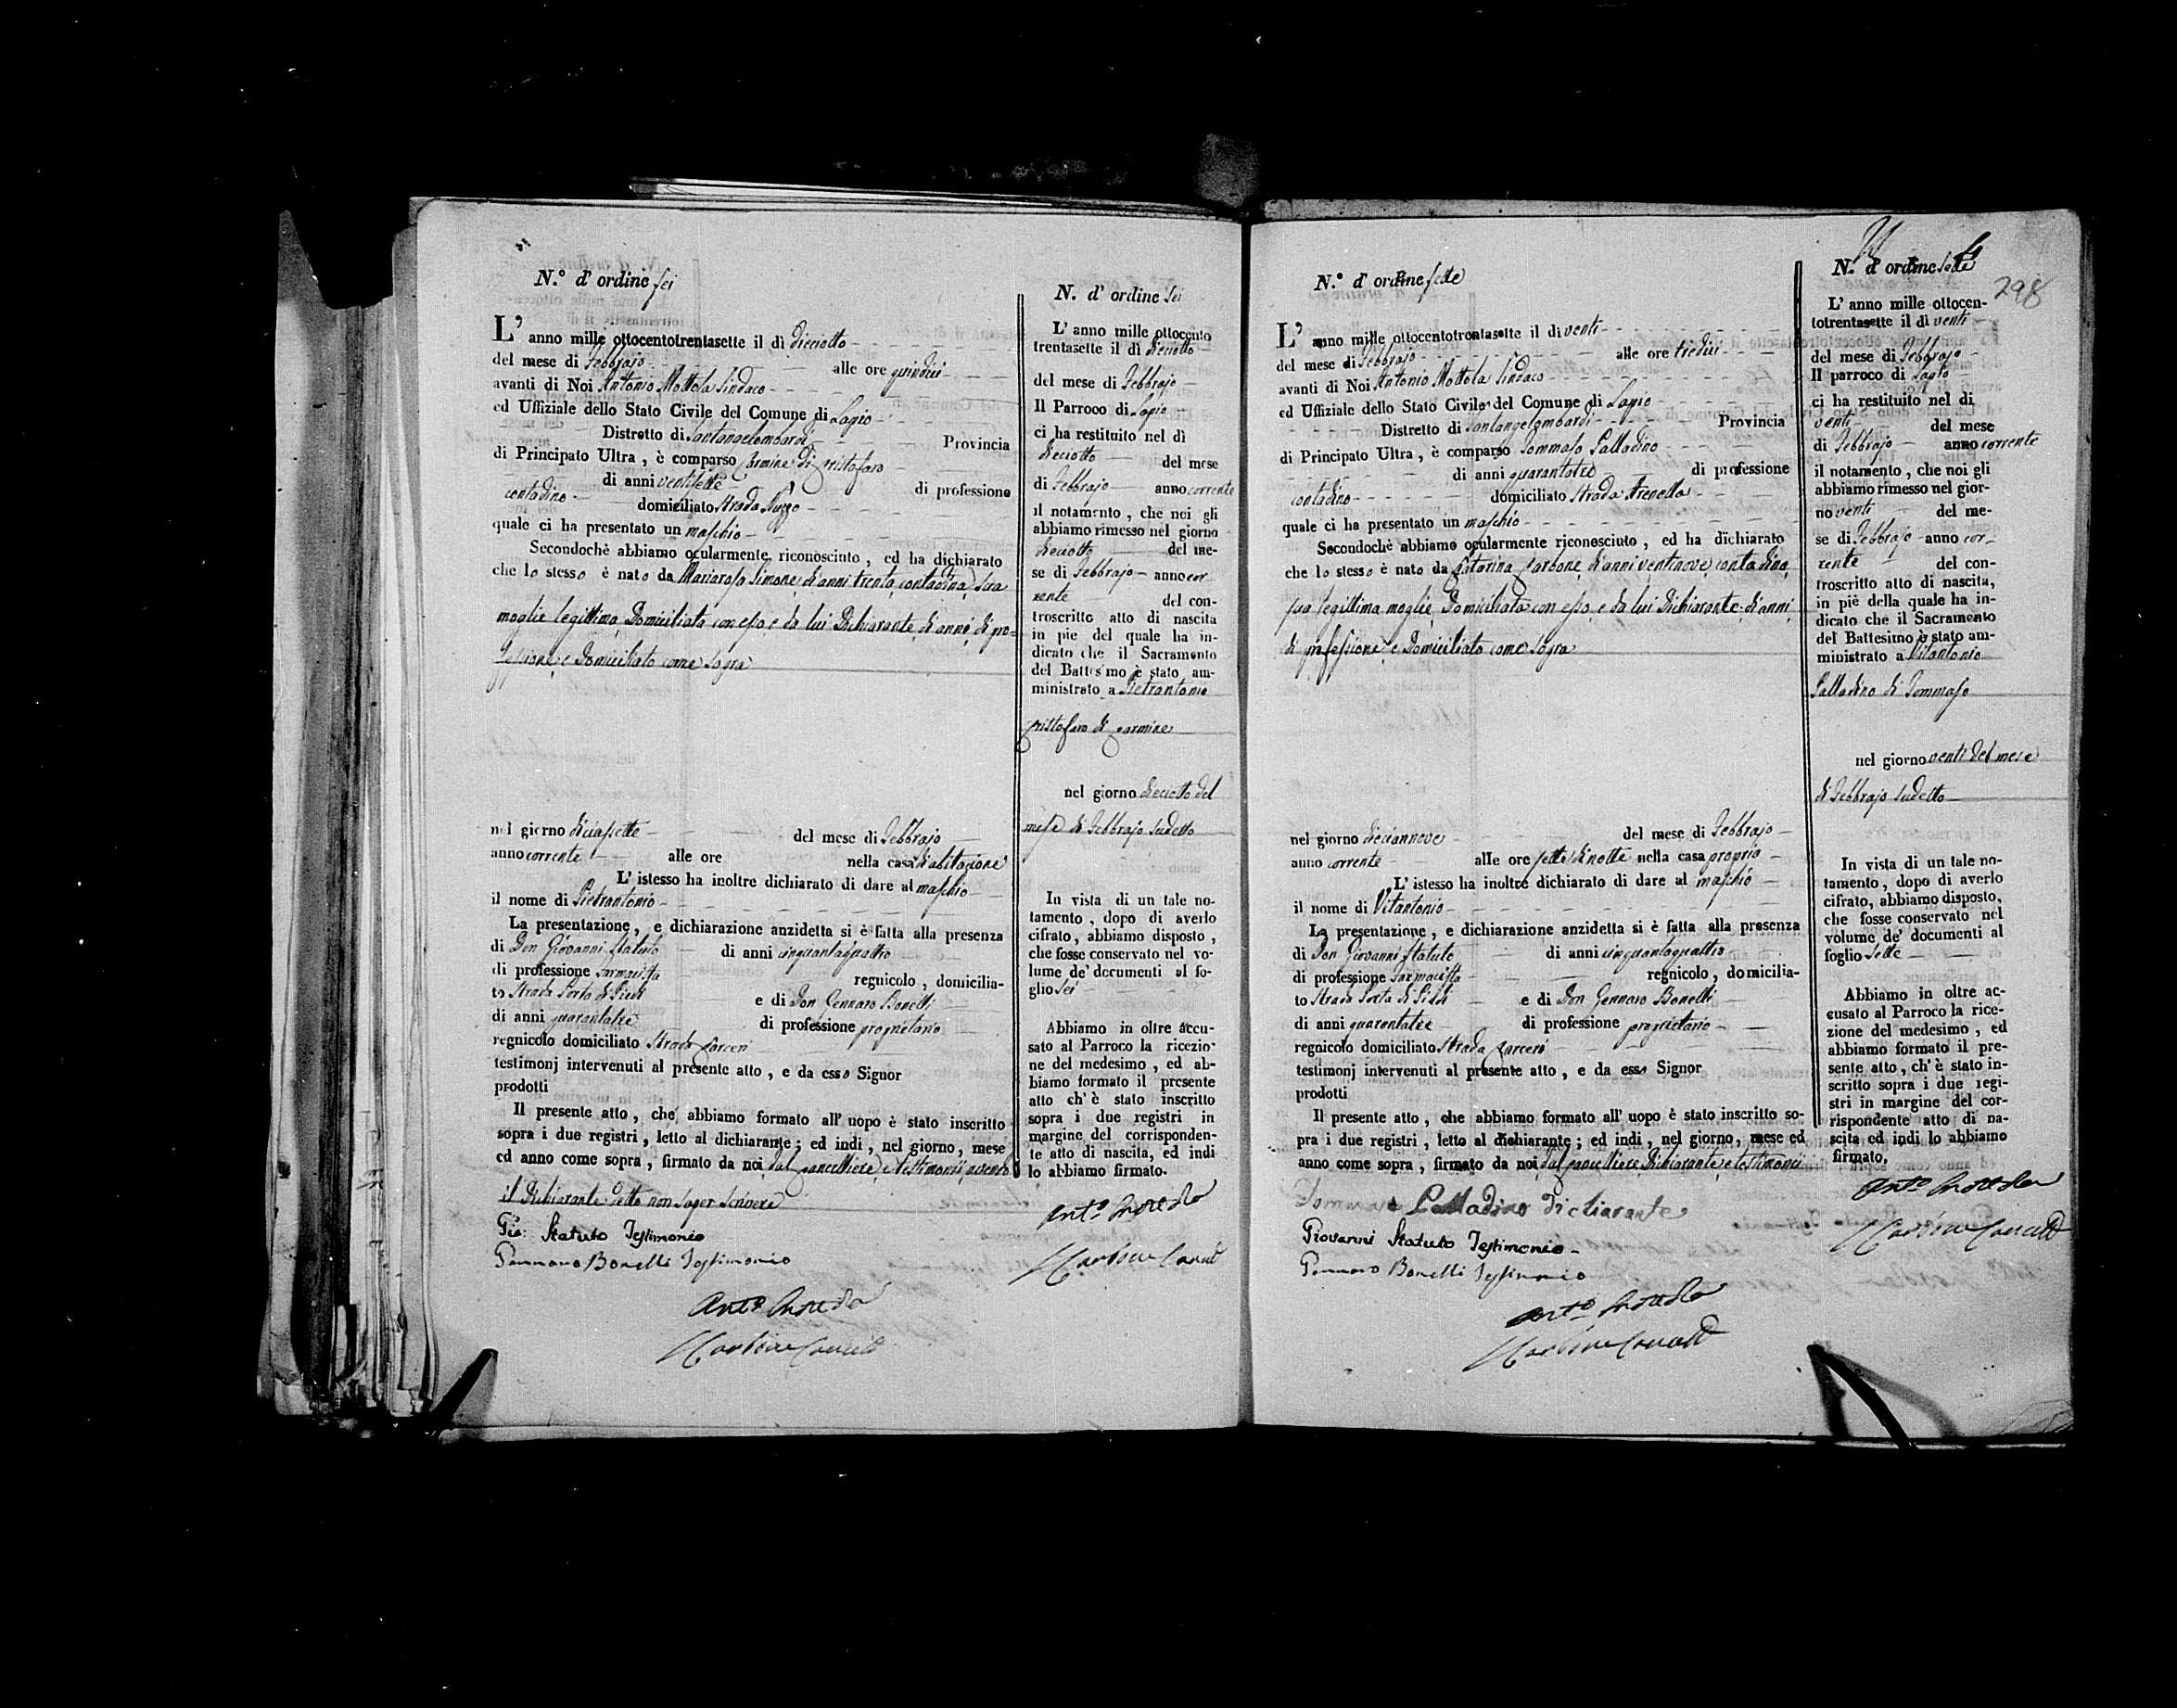 N.° d' ordine sei
L' anno mille ottocentotrentasette il dì dieciotto
del mese di Febbrajo alle ore quindici
avanti di Noi Antonio Mottola Sindaco
ed Uffiziale dello Stato Civile del Comune di Lagio
Distretto di Santangelombardi Provincia
di Principato Ultra , è comparso Carmine di Cristofaro
di anni ventisette di professione
contadino domiciliato Strada
quale ci ha presentato un maschio
Secondochè abbiamo ocularmente riconosciuto , ed ha dichiarato
che lo stesso è nato da Mariarosa Simone, di anni trenta, contadina, sua
moglie legittima, Domiciliata con esso, e da lui Dichiarante, di anni, di pro=
fessione, e Domiciliato come sopra
nel giorno diciassette del mese di Febbrajo
anno corrente alle ore nella casa di abitazione
L' istesso ha inoltre dichiarato di dare al maschio
il nome di Pietrantonio
La presentazione, e dichiarazione anzidetta si è fatta alla presenza
di Don Giovanni Statuto di anni cinquantaquattro
di professione Farmacista regnicolo , domicilia-
to Strada Porta di Piedi e di Don Gennaro Bonelli
di anni quarantatre di professione proprietario
regnicolo domiciliato Strada Carceri
testimonj intervenuti al presente atto , e da esso Signor
prodotti
Il presente atto , che abbiamo formato all' uopo è stato inscritto
sopra i due registri , letto al dichiarante ; ed indi , nel giorno, mese
ed anno come sopra , firmato da noi, dal Cancelliere, e testimonii, avendo
il Dichiarante detto non saper scrivere
Gio: Statuto Testimonio
Gennaro Bonelli Testimonio
Ant.° Mottola
N. d' ordine sei
L' anno mille ottocento
trentasette il dì dieciotto
del mese di Febbrajo
Il Parroco di Lagio
ci ha restituito nel dì
dieciotto del mese
di Febbrajo anno corrente
il notamento , che noi gli
abbiamo rimesso nel giorno
dieciotto del me-
se di Febbrajo anno cor
rente del con-
troscritto atto di nascita
in piè del quale ha in-
dicato che il Sacramento
del Battesimo è stato am-
ministrato a Pietrantonio
Cristofaro di Carmine
nel giorno dieciotto del
mese di Febbrajo sudetto
In vista di un tale no-
tamento , dopo di averlo
cifrato , abbiamo disposto ,
che fosse conservato nel vo-
lume de' documenti al fo-
glio sei
Abbiamo in oltre accu-
sato al Parroco la ricezio-
ne del medesimo , ed ab-
biamo formato il presente
atto ch' è stato inscritto
sopra i due registri in
margine del corrisponden-
te atto di nascita, ed indi
lo abbiamo firmato.
Ant.° Mottola
N.° d' ordine sette
L' anno mille ottocentotrentasette il dì venti
del mese di Febbrajo alle ore tredici
avanti di Noi Antonio Mottola Sindaco
ed Uffiziale dello Stato Civile del Comune di Lagio
Distretto di Santangelombardi Provincia
di Principato Ultra , è comparso Tommaso Palladino
di anni quarantatre di professione
contadino domiciliato Strada Arenella
quale ci ha presentato un maschio
Secondochè abbiamo ocularmente riconosciuto , ed ha dichiarato
che lo stesso è nato da Catarina Carbone, di anni ventinove, contadina,
sua legittima moglie, Domiciliata con esso, e da lui Dichiarante, di anni,
di professione, e Domiciliato come sopra
nel giorno diciannove del mese di Febbrajo
anno corrente alle ore sette di notte nella casa propria
L' istesso ha inoltre dichiarato di dare al maschio
il nome di Vitantonio
La presentazione , e dichiarazione anzidetta si è fatta alla presenza
di Don Giovanni Statuto di anni cinquantaquattro
di professione Farmacista regnicolo , domicilia-
to Strada Porta di Piedi e di Don Gennaro Bonelli
di anni quarantatre di professione proprietario
regnicolo domiciliato Strada Carceri
testimonj intervenuti al presente atto , e da esso Signor
prodotti
Il presente atto , che abbiamo formato all' uopo è stato inscritto so-
pra i due registri , letto al dichiarante ; ed indi , nel giorno, mese ed
anno come sopra , firmato da noi, dal Cancelliere, Dichiarante, e testimonii
Tommaso Palladino Dichiarante
Giovanni Statuto Testimonio
Gennaro Bonelli Testimonio
Ant.° Mottola
N.° d' ordine sette
298
L' anno mille ottocen-
totrentasette il dì venti
del mese di Febbrajo
Il parroco di Lagio
ci ha restituito nel dì
venti del mese
di Febbrajo anno corrente
il notamento , che noi gli
abbiamo rimesso nel gior-
no venti del me-
se di Febbrajo anno cor-
rente del con-
troscritto atto di nascita,
in piè della quale ha in-
dicato che il Sacramento
del Battesimo è stato am-
ministrato a Vitantonio
Palladino di Tommaso
nel giorno venti del mese
di Febbrajo sudetto
In vista di un tale no-
tamento , dopo di averlo
cifrato, abbiamo disposto,
che fosse conservato nel
volume de' documenti al
foglio sette
Abbiamo in oltre ac-
cusato al Parroco la rice-
zione del medesimo , ed
abbiamo formato il pre-
sente atto , ch' è stato in-
scritto sopra i due regi-
stri in margine del cor-
rispondente atto di na-
scita ed indi lo abbiamo
firmato,
Ant.° Mottola